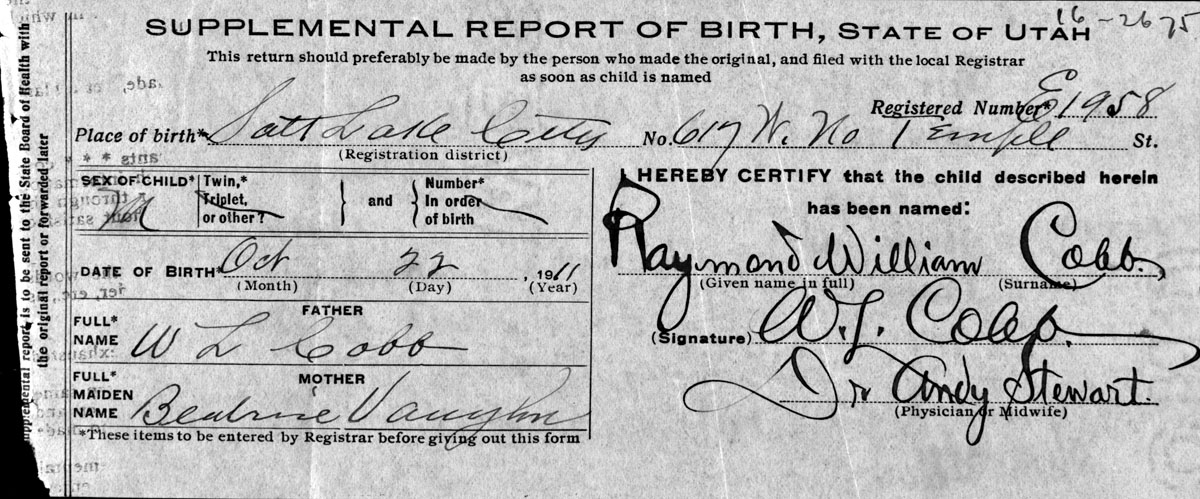 16-2675
SUPPLEMENTAL REPORT OF BIRTH, STATE OF UTAH
This return should preferably be made by the person who made the original, and filed with the local Registrar
as soon as child is named
Registered Number* E1958
Place of birth* Salt Lake City No. 617 W. No Temple St.
(Registration district)
SEX OF CHILD* M
Twin,*
Triplet,
or other?
and
Number*
In order
of birth
DATE OF BIRTH* Oct 22, 1911
(Month) (Day) (Year)
FATHER
FULL*
NAME W L Cobb
MOTHER
FULL*
MAIDEN
NAME Beatrice Vaughn
*These items to be entered by Registrar before giving out this form
I HEREBY CERTIFY that the child described herein
has been named:
Raymond William Cobb.
(Given name in full) (Surname)
(Signature) W.L. Cobb.
Dr Andy Stewart.
(Physician or Midwife)
supplemental report is to be sent to the State Board of Health with
the original report or forwarded later